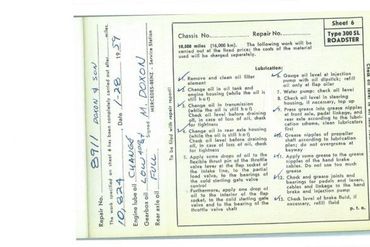 Repair No. 8911 DOXON & SON
The work specified on sheet 6 has been completely carried out after
10,824 Date 1-28 19 59
Engine lube oil CHANGE
Gearbox oil LOW
Rear axle oil FULL
Signed M. DOXON
MERCEDES-BENZ - Service Station
To be filed with repair record!
Sheet 6
Type 300 SL
ROADSTER
Chassis No. Repair No.
10,000 miles (16,000 km). The following work will be
carried out at the fixed price; the costs of the material
used will be charged separately.
Lubrication:
Remove and clean oil filter
element
Change oil in oil tank and
engine housing (while the oil is
still hot)
Change oil in transmission
(while the oil is still hot)
Check level before draining
oil, in case of loss of oil, check
for tightness
Change oil in rear axle housing
(while the oil is still hot)
Check level before draining
oil, in case of loss of oil, check
for tightness
5. Apply some drops of oil to the
flexible thrust pin of the throttle
valve lever at the flap socket of
the intake line, to the partition
wall, as well as to the bearings
of the cold starting gate valve
control
Furthermore, apply one drop of
oil to the interior of the flap
socket, to the cold starting gate
valve and to the bearing of the
throttle valve shaft
Gauge oil level at injection
pump with oil dipstick; refill
oil only at flap oiler
7. Water pump: check oil level
8. Check oil level in steering
housing, if necessary, top up
Press grease into grease nipples
at front axle, pedal linkage, and
rear axle according to the lubri-
cation scheme, clean lubricators
first
Grease nipples of propeller
shaft according to lubrication
plan; do not overgrease at
keyway
Apply some grease to the grease
nipples of the hand brake
cables. Do not use too much
grease
Check and grease joints and
bearings for pedals and levers,
cables and linkage to the hand
brake and injection pump
Check level of brake fluid, if
necessary, refill fluid
p. t. o.